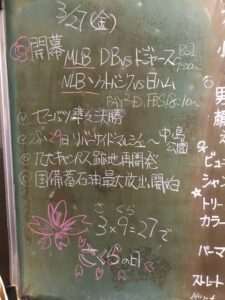 3/27(金)
◎開幕 MLB DBvsドジャース BS1
NLB ソフトバンクvs日ハム
PAYPAYD. FBS18:10〜
◎センバツ準々決勝
リバーサイドマルシェ〜中島公園
◎九大キャンパス跡地再開発
◎国備蓄石油最大放出開始
さくら
3×9=27で
さくらの日
小
男
顔
ビュー
シャン
トリー
カラー
パーマ
ストレート